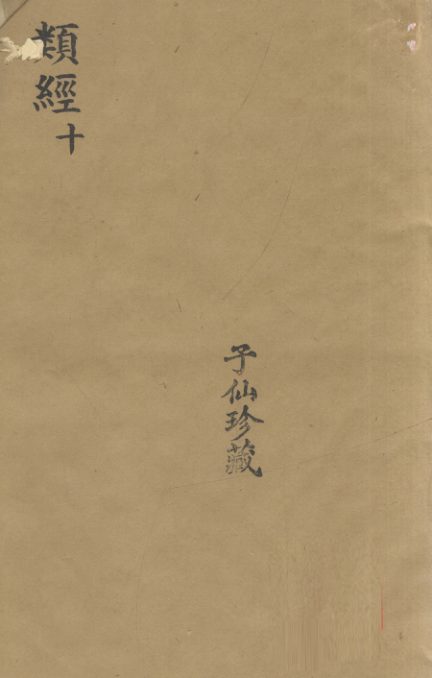 類經
十
子仙珍藏